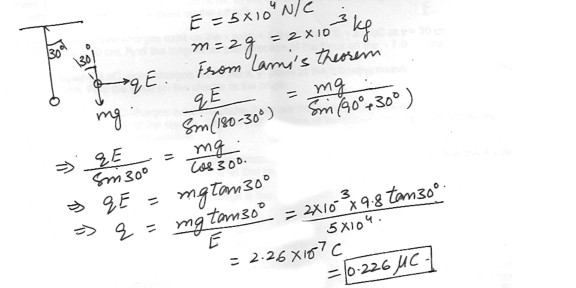 E = 5×10⁴ N/C
m = 2 g = 2×10⁻³ kg
From Lami's theorem
30°
30°
qE
mg
qE / Sin(180-30°) = mg / Sin(90°+30°)
⇒ qE / Sin30° = mg / Cos30°.
⇒ qE = mg tan30°
⇒ q = mg tan30° / E = 2×10⁻³ × 9.8 tan30° / 5×10⁴.
= 2.26 ×10⁻⁷ C
= 0.226 μC.